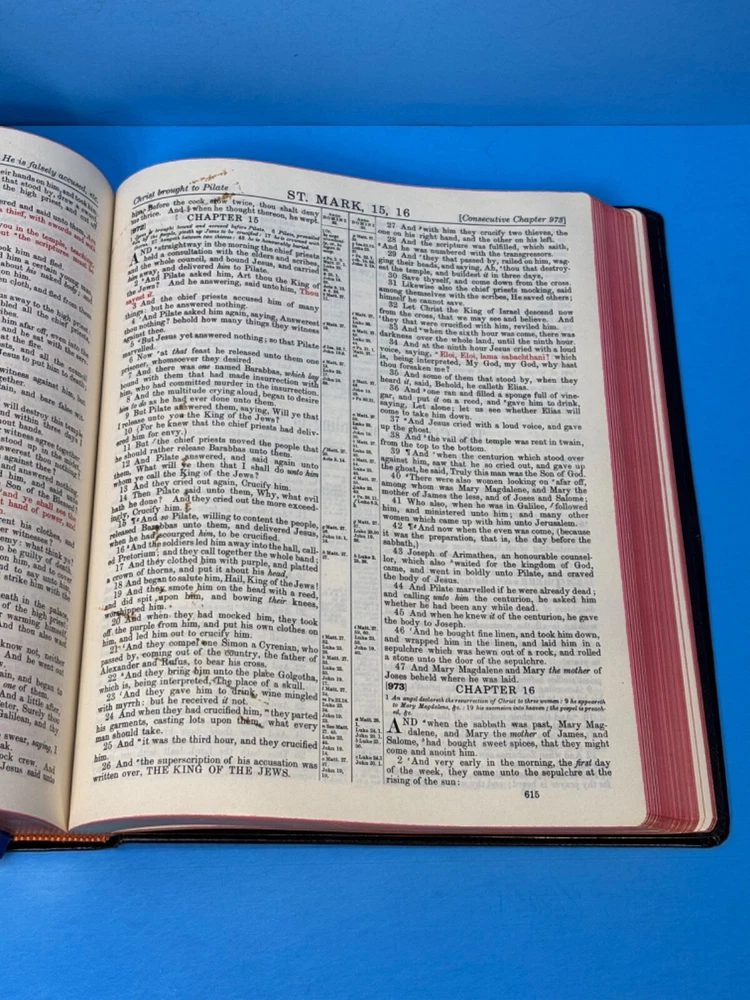 He is falsely accused, etc.
their hands on him, and took
that stood by, drew a
the high priest and
ered and said unto
a thief, with swords and
you in the temple, teaching
but the scriptures must
ook him and fled.
him a certain young
about his naked body; and
on him.
en cloth, and fled from
us away to the high priest
him afar off, even into
and all the council
Jesus to put him to death;
witness against him,
gether.
and bare false wit-
will destroy this temple
and within three days I
out hands.
r witness agree together.
stood up in the midst,
answerest thou nothing?
and answered nothing.
him, and said unto
Son of the Blessed?
and ye shall see the
right hand of power, and
rent his clothes, and
er witnesses?
emy: what think ye?
to be guilty of death.
n him, and to cover
and to say unto him,
strike him with the
neath in the palace,
of the high priest:
r warming himself,
And thou also wast
know not, neither
And he went out
ain, and began to
one of them.
And a little after
eter, Surely thou
Galilean, and thy
wear, saying, I
ak.
ock crew. And
Jesus said unto
Christ brought to Pilate
ST. MARK, 15, 16
[Consecutive Chapter 973]
him, Before the cock crow twice, thou shalt deny
me thrice. And when he thought thereon, he wept.
[972] CHAPTER 15
AND straightway in the morning the chief priests
held a consultation with the elders and scribes,
and the whole council, and bound Jesus, and carried
him away, and delivered him to Pilate.
2 And Pilate asked him, Art thou the King of
the Jews? And he answering, said unto him, Thou
sayest it.
3 And the chief priests accused him of many
things: but he answered nothing.
4 And Pilate asked him again, saying, Answerest
thou nothing? behold how many things they witness
against thee.
5 But Jesus yet answered nothing; so that Pilate
marvelled.
6 Now at that feast he released unto them one
prisoner, whomsoever they desired.
7 And there was one named Barabbas, which lay
bound with them that had made insurrection with
him, who had committed murder in the insurrection.
8 And the multitude crying aloud, began to desire
him to do as he had ever done unto them.
9 But Pilate answered them, saying, Will ye that
I release unto you the King of the Jews?
10 (For he knew that the chief priests had deliv-
ered him for envy.)
11 But the chief priests moved the people that
he should rather release Barabbas unto them.
12 And Pilate answered, and said again unto
them, What will ye then that I shall do unto him
whom ye call the King of the Jews?
13 And they cried out again, Crucify him.
14 Then Pilate said unto them, Why, what evil
hath he done? And they cried out the more exceed-
ingly, Crucify him.
15 ¶ And so Pilate, willing to content the people,
released Barabbas unto them, and delivered Jesus,
when he had scourged him, to be crucified.
16 And the soldiers led him away into the hall, call-
ed Pretorium; and they call together the whole band;
17 And they clothed him with purple, and platted
a crown of thorns, and put it about his head,
18 And began to salute him, Hail, King of the Jews!
19 And they smote him on the head with a reed,
and did spit upon him, and bowing their knees,
worshipped him.
20 And when they had mocked him, they took
off the purple from him, and put his own clothes on
him, and led him out to crucify him.
21 And they compel one Simon a Cyrenian, who
passed by, coming out of the country, the father of
Alexander and Rufus, to bear his cross.
22 And they bring him unto the place Golgotha,
which is, being interpreted, The place of a skull.
23 And they gave him to drink, wine mingled
with myrrh: but he received it not.
24 And when they had crucified him, they parted
his garments, casting lots upon them, what every
man should take.
25 And it was the third hour, and they crucified
him.
26 And the superscription of his accusation was
written over, THE KING OF THE JEWS.
27 And with him they crucify two thieves, the
one on his right hand, and the other on his left.
28 And the scripture was fulfilled, which saith,
And he was numbered with the transgressors.
29 And they that passed by, railed on him, wag-
ging their heads, and saying, Ah, thou that destroy-
est the temple, and buildest it in three days,
30 Save thyself, and come down from the cross.
31 Likewise also the chief priests mocking, said
among themselves with the scribes, He saved others;
himself he cannot save.
32 Let Christ the King of Israel descend now
from the cross, that we may see and believe. And
they that were crucified with him, reviled him.
33 And when the sixth hour was come, there was
darkness over the whole land, until the ninth hour.
34 And at the ninth hour Jesus cried with a loud
voice, saying, Eloi, Eloi, lama sabachthani? which
is, being interpreted, My God, my God, why hast
thou forsaken me?
35 And some of them that stood by, when they
heard it, said, Behold, he calleth Elias.
36 And one ran and filled a sponge full of vine-
gar, and put it on a reed, and gave him to drink,
saying, Let alone; let us see whether Elias will
come to take him down.
37 And Jesus cried with a loud voice, and gave
up the ghost.
38 And the vail of the temple was rent in twain,
from the top to the bottom.
39 ¶ And when the centurion which stood over
against him, saw that he so cried out, and gave up
the ghost, he said, Truly this man was the Son of God.
40 There were also women looking on afar off,
among whom was Mary Magdalene, and Mary the
mother of James the less, and of Joses, and Salome;
41 Who also, when he was in Galilee, followed
him, and ministered unto him; and many other
women which came up with him unto Jerusalem.
42 ¶ And now when the even was come, (because
it was the preparation, that is, the day before the
sabbath,)
43 Joseph of Arimathea, an honourable counsel-
lor, which also waited for the kingdom of God,
came, and went in boldly unto Pilate, and craved
the body of Jesus.
44 And Pilate marvelled if he were already dead;
and calling unto him the centurion, he asked him
whether he had been any while dead.
45 And when he knew it of the centurion, he gave
the body to Joseph.
46 And he bought fine linen, and took him down,
and wrapped him in the linen, and laid him in a
sepulchre which was hewn out of a rock, and rolled
a stone unto the door of the sepulchre.
47 And Mary Magdalene and Mary the mother of
Joses beheld where he was laid.
[973] CHAPTER 16
1 An angel declareth the resurrection of Christ to three women: 9 he appeareth
to Mary Magdalene, &c.: 19 his ascension into heaven; the gospel is preach-
ed, &c.
AND when the sabbath was past, Mary Mag-
dalene, and Mary the mother of James, and
Salome, had bought sweet spices, that they might
come and anoint him.
2 And very early in the morning, the first day
of the week, they came unto the sepulchre at the
rising of the sun:
615